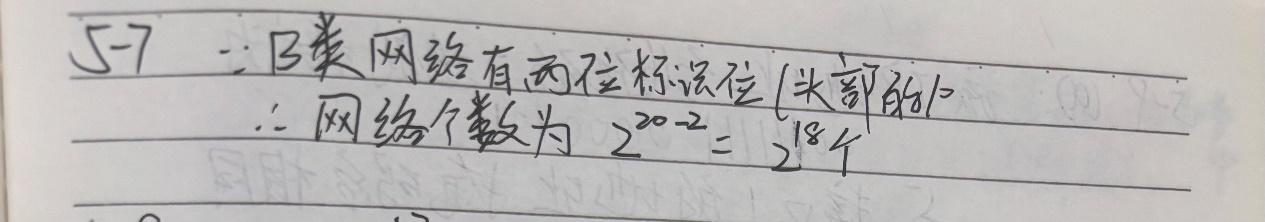 5-7 ∵B类网络有两位标识位(头部的1
∴网络个数为 2^{20-2} = 2^{18}个